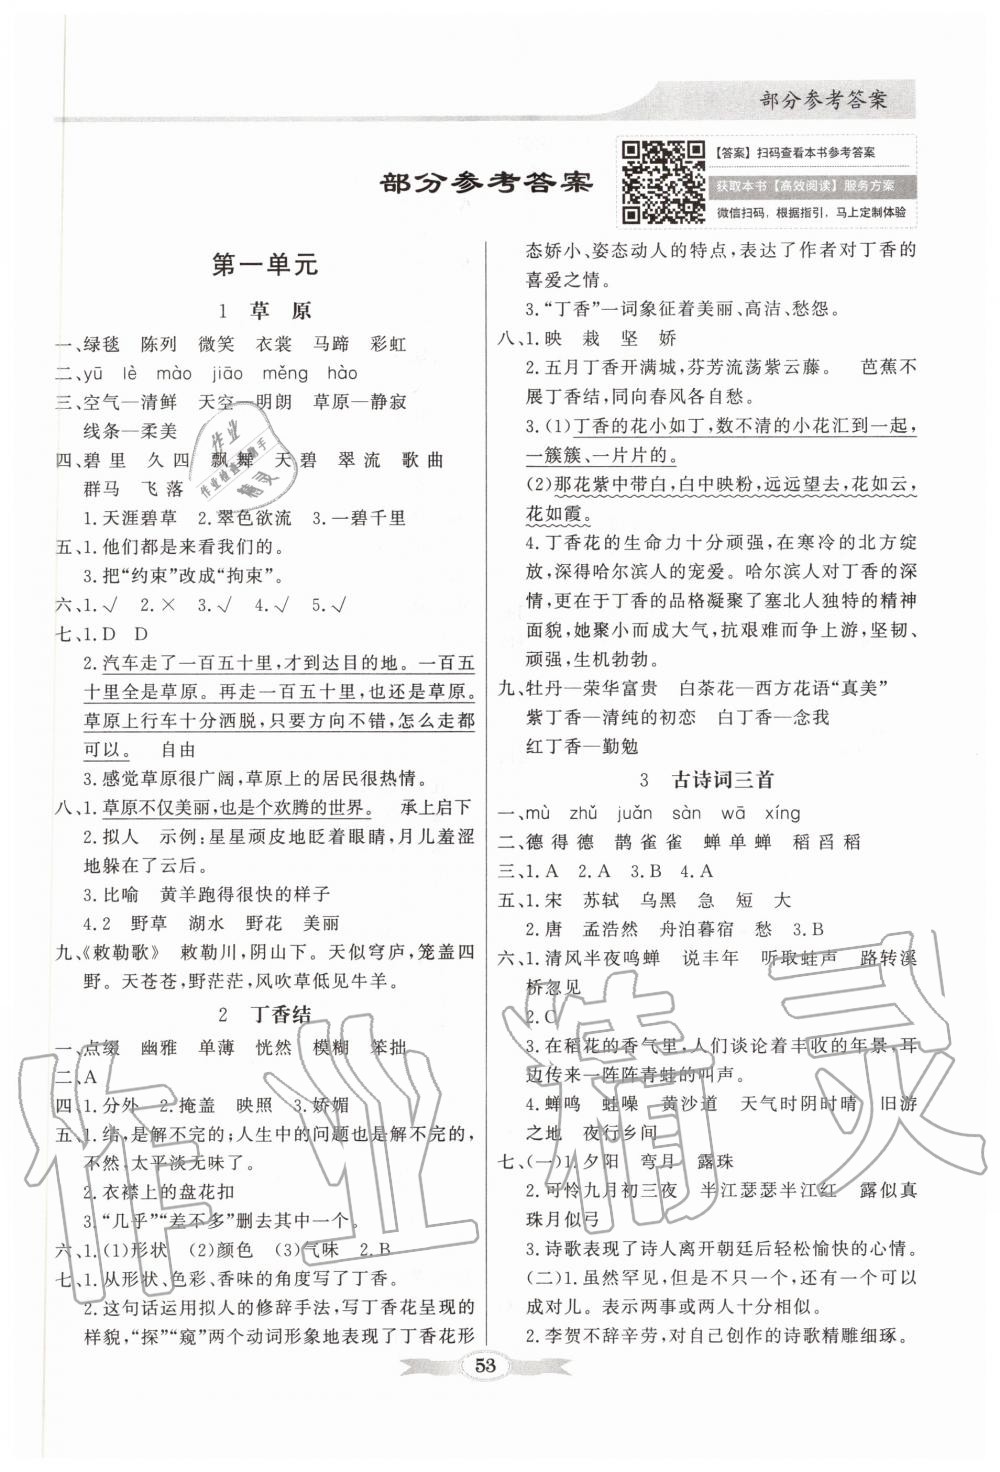 部分参考答案
部分参考答案
【答案】扫码查看本书参考答案
获取本书【高效阅读】服务方案
微信扫码，根据指引，马上定制体验
第一单元
1 草 原
一、绿毯 陈列 微笑 衣裳 马蹄 彩虹
二、yū lè mào jiāo měng hào
三、空气—清鲜 天空—明朗 草原—静寂
线条—柔美
四、碧 里 久 四 飘 舞 天 碧 翠 流 歌 曲
群马 飞 落
1.天涯碧草 2.翠色欲流 3.一碧千里
五、1.他们都是来看我们的。
3.把“约束”改成“拘束”。
六、1.√ 2.× 3.√ 4.√ 5.√
七、1.D D
2.汽车走了一百五十里，才到达目的地。一百五
十里全是草原。再走一百五十里，也还是草原。
草原上行车十分洒脱，只要方向不错，怎么走都
可以。 自由
3.感觉草原很广阔，草原上的居民很热情。
八、1.草原不仅美丽，也是个欢腾的世界。 承上启下
2.拟人 示例：星星顽皮地眨着眼睛，月儿羞涩
地躲在了云后。
3.比喻 黄羊跑得很快的样子
4.2 野草 湖水 野花 美丽
九、《敕勒歌》 敕勒川，阴山下。天似穹庐，笼盖四
野。天苍苍，野茫茫，风吹草低见牛羊。
2 丁香结
一、点缀 幽雅 单薄 恍然 模糊 笨拙
二、A
四、1.分外 2.掩盖 映照 3.娇媚
五、1.结，是解不完的；人生中的问题也是解不完的，
不然，太平淡无味了。
2.衣襟上的盘花扣
3.“几乎”“差不多”删去其中一个。
六、1.(1)形状 (2)颜色 (3)气味 2.B
七、1.从形状、色彩、香味的角度写了丁香。
2.这句话运用拟人的修辞手法，写丁香花呈现的
样貌，“探”“窥”两个动词形象地表现了丁香花形
态娇小、姿态动人的特点，表达了作者对丁香的
喜爱之情。
3.“丁香”一词象征着美丽、高洁、愁怨。
八、1.映 栽 坚 娇
2.五月丁香开满城，芬芳流荡紫云藤。 芭蕉不
展丁香结，同向春风各自愁。
3.(1)丁香的花小如丁，数不清的小花汇到一起，
一簇簇、一片片的。
(2)那花紫中带白，白中映粉，远远望去，花如云，
花如霞。
4.丁香花的生命力十分顽强，在寒冷的北方绽
放，深得哈尔滨人的宠爱。哈尔滨人对丁香的深
情，更在于丁香的品格凝聚了塞北人独特的精神
面貌，她聚小而成大气，抗艰难而争上游，坚韧、
顽强，生机勃勃。
九、牡丹—荣华富贵 白茶花—西方花语“真美”
紫丁香—清纯的初恋 白丁香—念我
红丁香—勤勉
3 古诗词三首
一、mù zhǔ juǎn sàn wā xíng
二、德 得 德 鹊 雀 雀 蝉 单 蝉 稻 舀 稻
三、1.A 2.A 3.B 4.A
五、1.宋 苏轼 乌黑 急 短 大
2.唐 孟浩然 舟泊暮宿 愁 3.B
六、1.清风半夜鸣蝉 说丰年 听取蛙声 路转溪
桥忽见
2.C
3.在稻花的香气里，人们谈论着丰收的年景，耳
边传来一阵阵青蛙的叫声。
4.蝉鸣 蛙噪 黄沙道 天气时阴时晴 旧游
之地 夜行乡间
七、(一)1.夕阳 弯月 露珠
2.可怜九月初三夜 半江瑟瑟半江红 露似真
珠月似弓
3.诗歌表现了诗人离开朝廷后轻松愉快的心情。
(二)1.虽然罕见，但是不只一个，还有一个可以
成对儿。表示两事或两人十分相似。
2.李贺不辞辛劳，对自己创作的诗歌精雕细琢。
53
作业精灵
作业
作业检查小助手
精灵